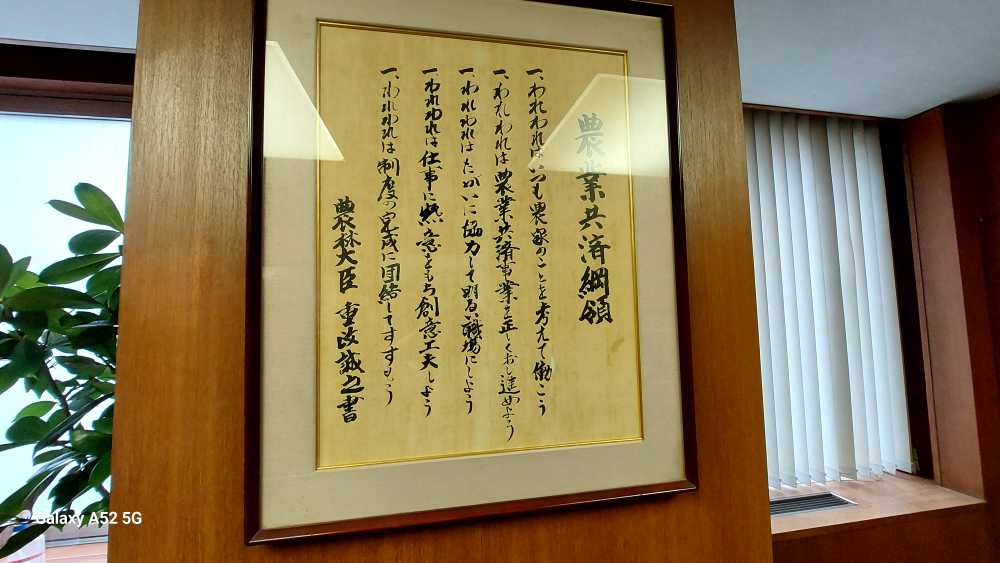 農業共済綱領
一、われわれはいつも農家のことを考えて働こう
一、われわれは農業共済事業を正しくおし進めよう
一、われわれはたがいに協力して明るい職場にしよう
一、われわれは仕事に熱意をもち創意工夫しよう
一、われわれは制度の完成に団結してすすもう
農林大臣 重政誠之書
Galaxy A52 5G